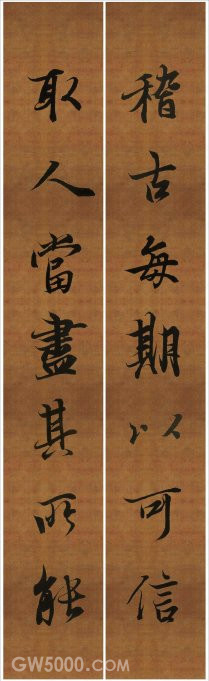 稽古每期以可信
取人當盡其所能
GW5000.com